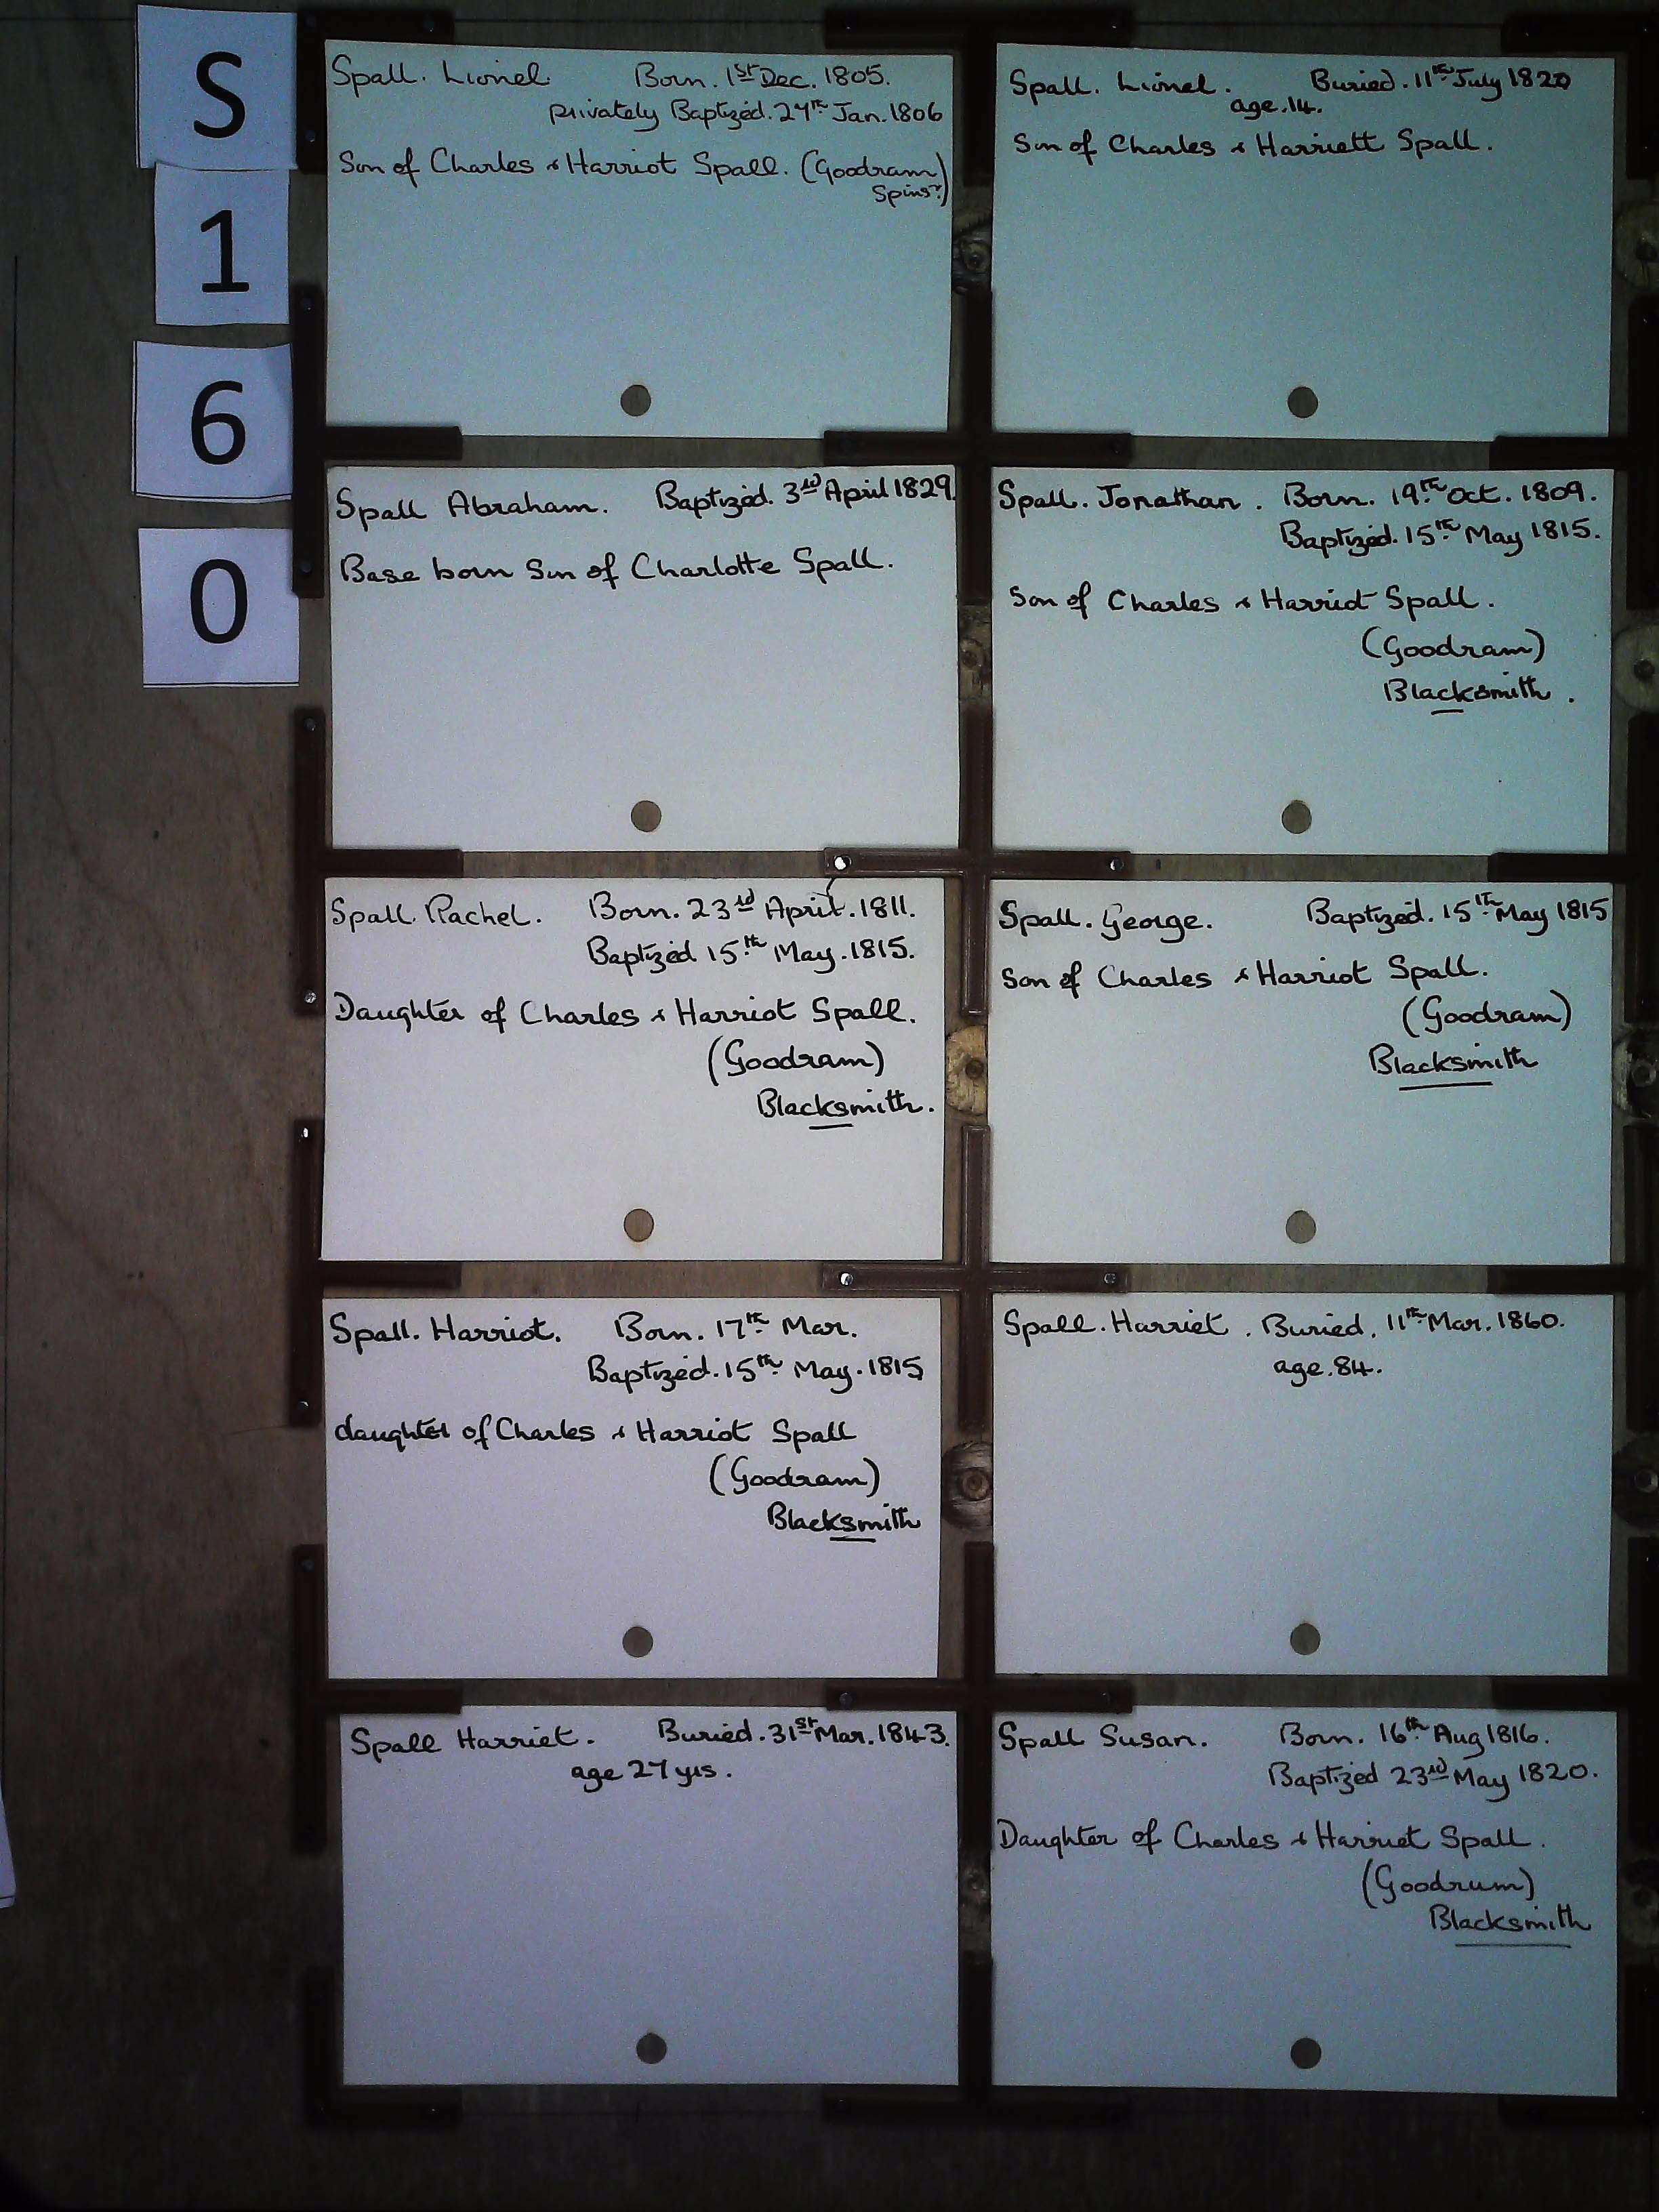 S
1
6
0
Spall. Lionel. Born. 1st Dec. 1805.
privately Baptized. 27th Jan. 1806
Son of Charles & Harriot Spall. (Goodram)
Spinsr.)
Spall. Lionel. Buried. 11th July 1820
age. 14.
Son of Charles & Harriett Spall.
Spall Abraham. Baptized. 3rd April 1829.
Base born Son of Charlotte Spall.
Spall. Jonathan. Born. 19th Oct. 1809.
Baptized. 15th May 1815.
Son of Charles & Harriot Spall.
(Goodram)
Blacksmith.
Spall. Rachel. Born. 23rd April. 1811.
Baptized 15th May. 1815.
Daughter of Charles & Harriot Spall.
(Goodram)
Blacksmith.
Spall. George. Baptized. 15th May 1815
Son of Charles & Harriot Spall.
(Goodram)
Blacksmith
Spall. Harriot. Born. 17th Mar.
Baptized. 15th May. 1815
daughter of Charles & Harriot Spall
(Goodram)
Blacksmith
Spall. Harriet. Buried. 11th Mar. 1860.
age. 84.
Spall Harriet. Buried. 31st Mar. 1843.
age 27 yrs.
Spall Susan. Born. 16th Aug 1816.
Baptized 23rd May 1820.
Daughter of Charles & Harriet Spall.
(Goodrum)
Blacksmith